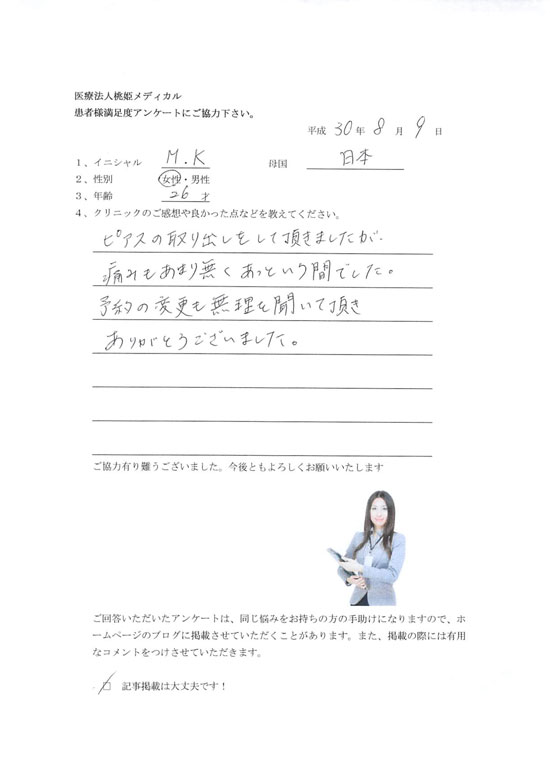 医療法人桃姫メディカル
患者様満足度アンケートにご協力下さい。
平成 30 年 8 月 9 日
1、イニシャル M.K 母国 日本
2、性別 女性・男性
3、年齢 26 才
4、クリニックのご感想や良かった点などを教えてください。
ピアスの取り出しをして頂きましたが、
痛みもあまり無くあっという間でした。
予約の変更も無理を聞いて頂き
ありがとうございました。
ご協力有り難うございました。今後ともよろしくお願いいたします
ご回答いただいたアンケートは、同じ悩みをお持ちの方の手助けになりますので、ホ
ームページのブログに掲載させていただくことがあります。また、掲載の際には有用
なコメントをつけさせていただきます。
□ 記事掲載は大丈夫です！